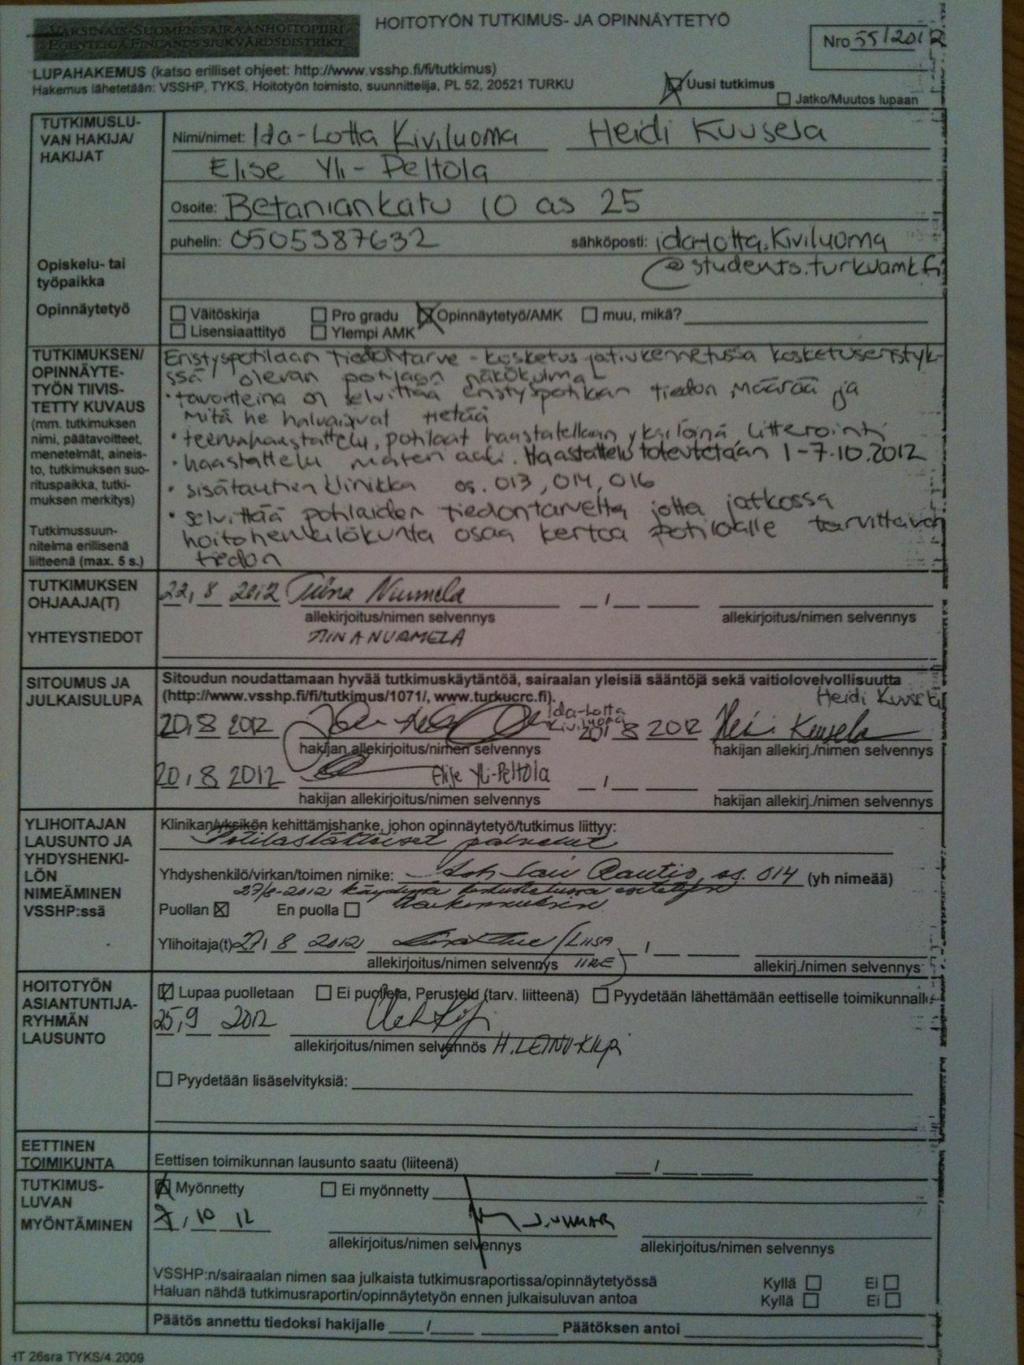 VARSINAIS-SUOMEN SAIRAANHOITOPIIRI
EGENTLIGA FINLANDS SJUKVÅRDSDISTRIKT
HOITOTYÖN TUTKIMUS- JA OPINNÄYTETYÖ
Nro 55/2012
LUPAHAKEMUS (katso erilliset ohjeet: http://www.vsshp.fi/fi/tutkimus)
Hakemus lähetetään: VSSHP, TYKS, Hoitotyön toimisto, suunnittelija, PL 52, 20521 TURKU
Uusi tutkimus
Jatko/Muutos lupaan
TUTKIMUSLU-
VAN HAKIJA/
HAKIJAT
Nimi/nimet: Ida-Lotta Kiviluoma Heidi Kuusela
Elise Yli-Peltola
Osoite: Betaniankatu 10 as 25
puhelin: 0505387632 sähköposti: ida-lotta.kiviluoma
@students.turkuamk.fi
Opiskelu- tai
työpaikka
Opinnäytetyö
Väitöskirja Pro gradu Opinnäytetyö/AMK muu, mikä?
Lisensiaattityö Ylempi AMK
TUTKIMUKSEN/
OPINNÄYTE-
TYÖN TIIVIS-
TETTY KUVAUS
(mm. tutkimuksen
nimi, päätavoitteet,
menetelmät, aineis-
to, tutkimuksen suo-
rituspaikka, tutki-
muksen merkitys)
Tutkimussuun-
nitelma erillisenä
liitteenä (max. 5 s.)
Eristyspotilaan tiedontarve - kosketus
ssä olevan potilaan näkökulma
• tavoitteina on selvittää eristyspotilaan tiedon määrää ja
mitä he haluaisivat tietää
• teemahaastattelu, potilaat haastatellaan yksilöinä, litterointi
• haastattelu Haastattelu toteutetaan 1-7.10.2012
• sisätautien klinikka os. 013, 014, 016
• selvittää potilaiden tiedontarvetta jotta jatkossa
hoitohenkilökunta osaa kertoa potilaalle tarvittavan
tiedon
TUTKIMUKSEN
OHJAAJA(T)
22,8 2012 Tiina Nurmela
allekirjoitus/nimen selvennys allekirjoitus/nimen selvennys
YHTEYSTIEDOT
TIINA NURMELA
SITOUMUS JA
JULKAISULUPA
Sitoudun noudattamaan hyvää tutkimuskäytäntöä, sairaalan yleisiä sääntöjä sekä vaitiolovelvollisuutta
(http://www.vsshp.fi/fi/tutkimus/1071/, www.turkucrc.fi).
Heidi Kuusela
20,8 2012 Ida-Lotta Kiviluoma 20,8 2012 Heidi Kuusela
hakijan allekirjoitus/nimen selvennys hakijan allekirj./nimen selvennys
20,8 2012 Elise Yli-Peltola
hakijan allekirjoitus/nimen selvennys hakijan allekirj./nimen selvennys
YLIHOITAJAN
LAUSUNTO JA
YHDYSHENKI-
LÖN
NIMEÄMINEN
VSSHP:ssä
Klinikan/yksikön kehittämishanke, johon opinnäytetyö/tutkimus liittyy:
Potilaslähtöiset palvelut
Yhdyshenkilö/virkan/toimen nimike: os. 014 (yh nimeää)
27/8-2012 käydyssä keskustelussa
Puollan En puolla
Ylihoitaja(t) 27,8 2012
allekirjoitus/nimen selvennys allekirj./nimen selvennys
HOITOTYÖN
ASIANTUNTIJA-
RYHMÄN
LAUSUNTO
Lupaa puolletaan Ei puolleta, Perustelu (tarv. liitteenä) Pyydetään lähettämään eettiselle toimikunnalle
25,9 2012
allekirjoitus/nimen selvennös H. LEINO-KILPI
Pyydetään lisäselvityksiä:
EETTINEN
TOIMIKUNTA
Eettisen toimikunnan lausunto saatu (liiteenä)
TUTKIMUS-
LUVAN
MYÖNTÄMINEN
Myönnetty Ei myönnetty
10 12
allekirjoitus/nimen selvennys allekirjoitus/nimen selvennys
VSSHP:n/sairaalan nimen saa julkaista tutkimusraportissa/opinnäytetyössä Kyllä Ei
Haluan nähdä tutkimusraportin/opinnäytetyön ennen julkaisuluvan antoa Kyllä Ei
Päätös annettu tiedoksi hakijalle Päätöksen antoi
HT 26sra TYKS/4.2009